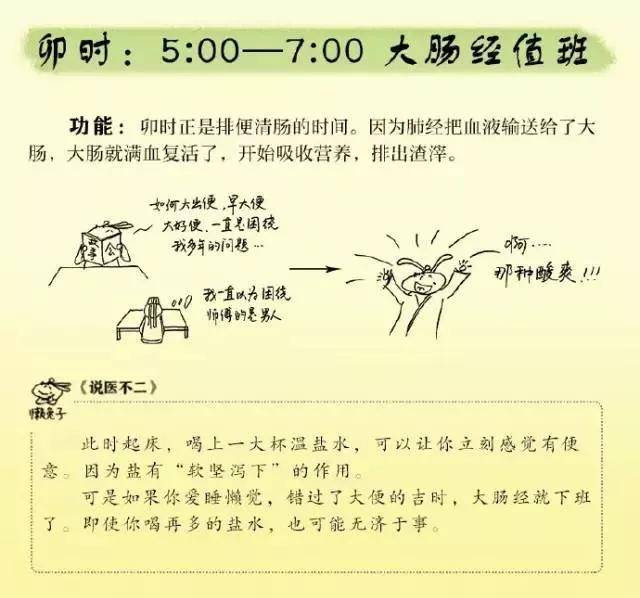 卯时：5:00—7:00 大肠经值班
功能：卯时正是排便清肠的时间。因为肺经把血液输送给了大
肠，大肠就满血复活了，开始吸收营养，排出渣滓。
如何大出便，早大便
大好便，一直是困绕
我多年的问题…
我一直以为困绕
师傅的是男人
啊……
那种酸爽!!!
懒兔子
《说医不二》
此时起床，喝上一大杯温盐水，可以让你立刻感觉有便
意。因为盐有“软坚泻下”的作用。
可是如果你爱睡懒觉，错过了大便的吉时，大肠经就下班
了。即使你喝再多的盐水，也可能无济于事。